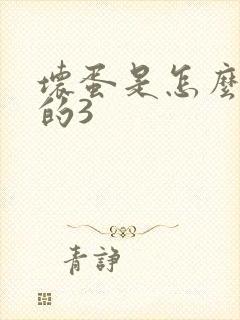 壞蛋是怎麼
的3
青諍